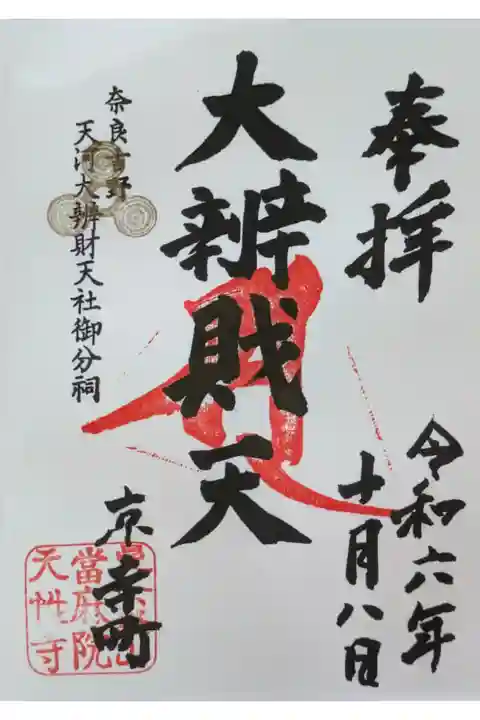 奉拝
令和六年
十月八日
大辨財天
奈良吉野
天河大辨財天社御分祠
京寺町
當麻院
天性寺